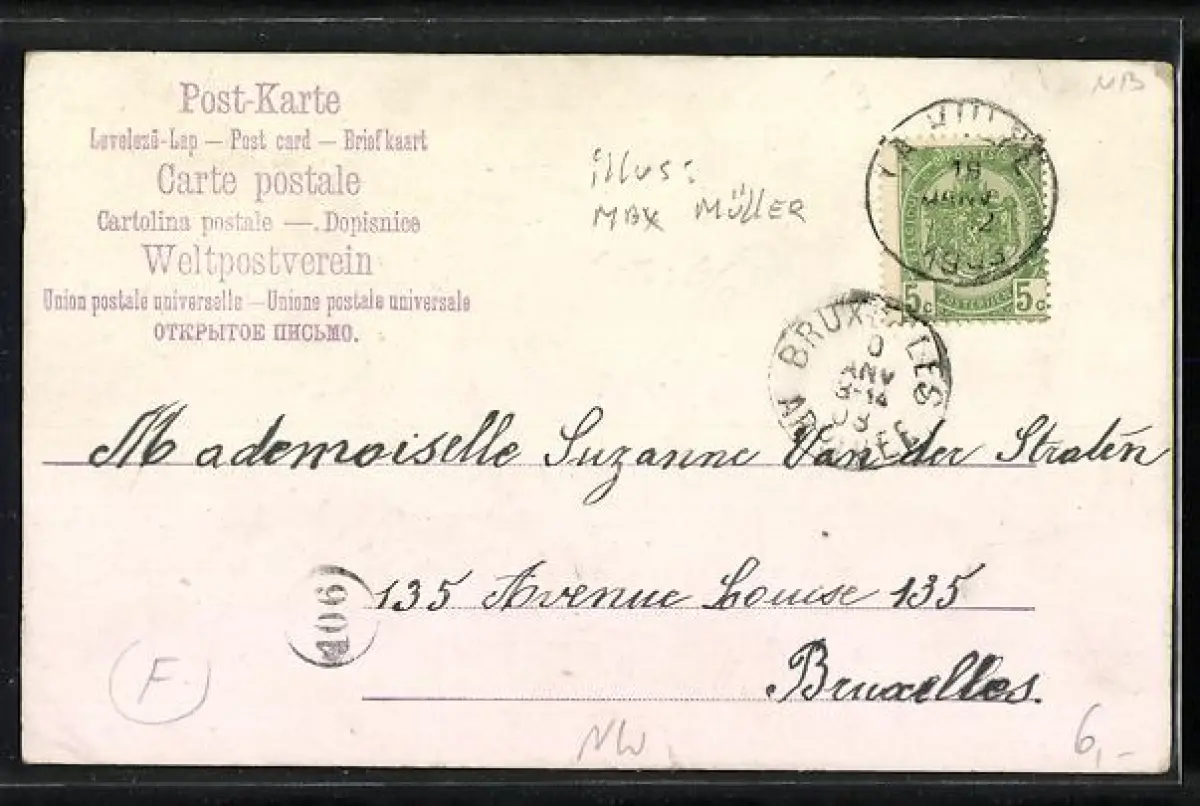 Post-Karte
Levelező-Lap — Post card — Briefkaart
Carte postale
Cartolina postale —. Dopisnice
Weltpostverein
Union postale universelle — Unione postale universale
ОТКРЫТОЕ ПИСЬМО.
MB
illus:
MBX MÜLLER
18
JANV
2
1903
5c 5c
BRUXELLES
ANV
8-14
03
ARRIVEE
Mademoiselle Suzanne Van der Straten
135 Avenue Louise 135
Bruxelles.
406
F
NW
6,-